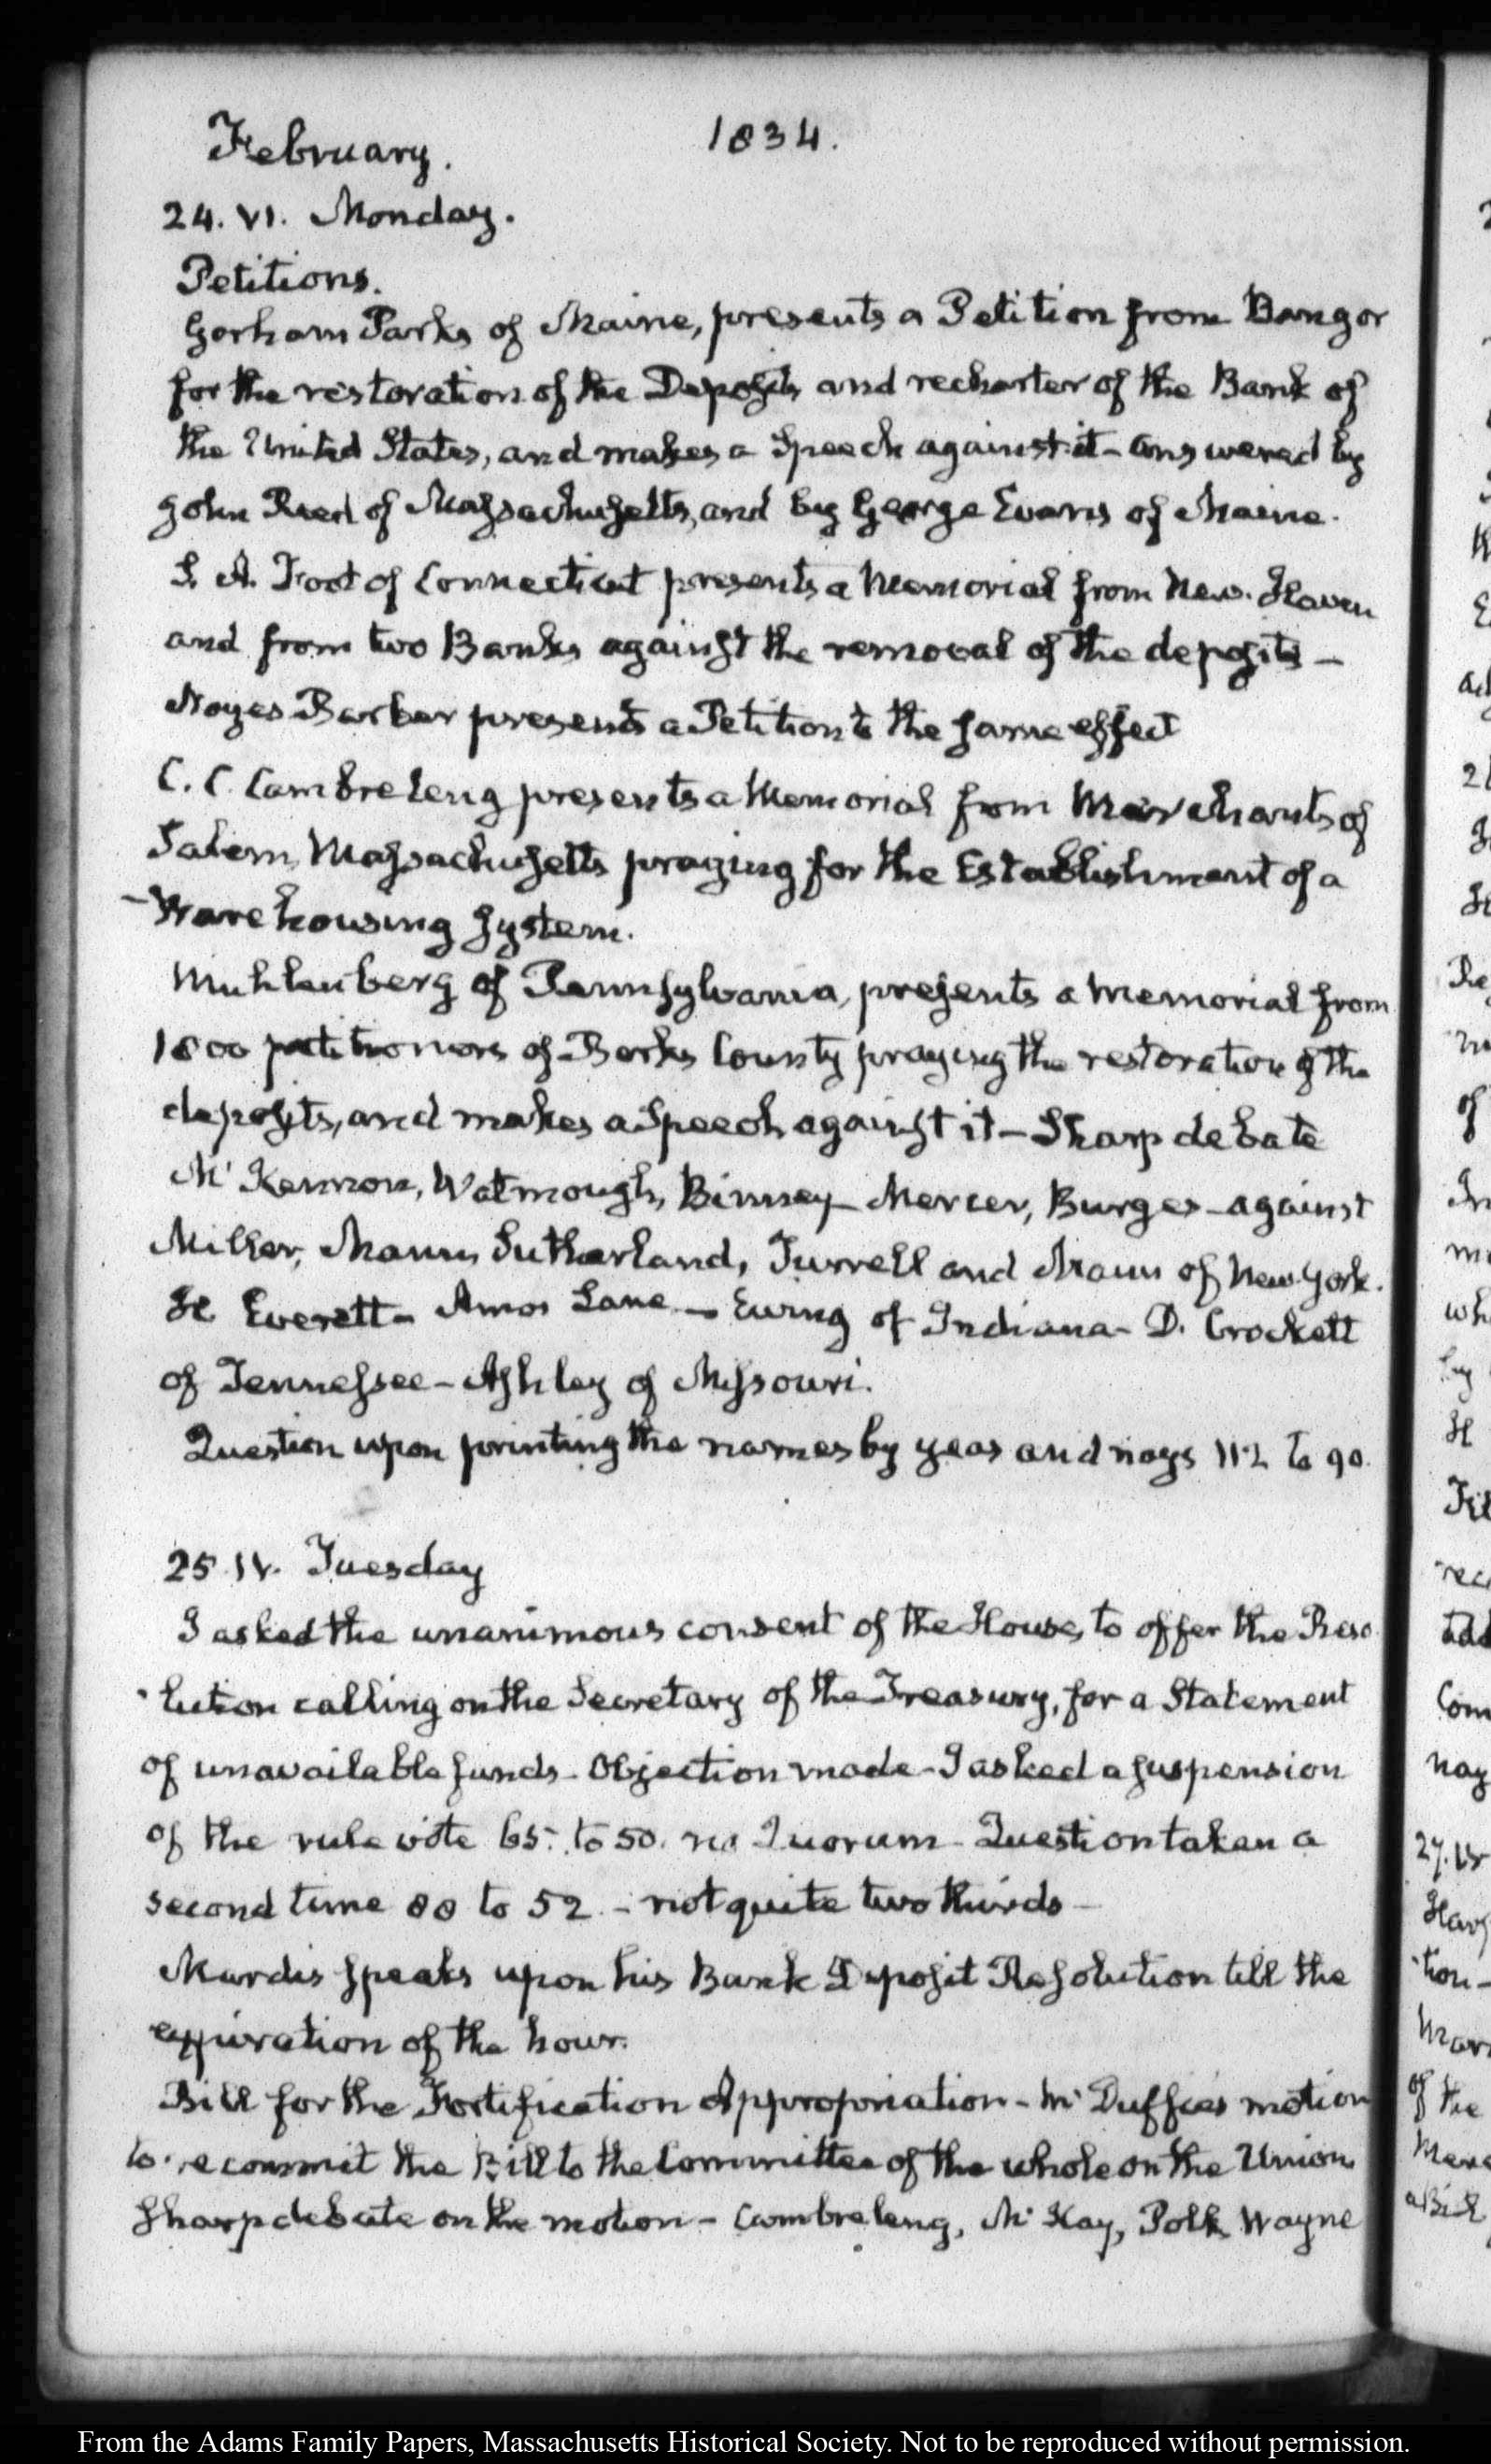 February. 1834.
24. VI. Monday.
Petitions.
Gorham Parks of Maine, presents a Petition from Bangor
for the restoration of the Deposits and recharter of the Bank of
the United States, and makes a Speech against it - answered by
John Reed of Massachusetts, and by George Evans of Maine.
S. A. Foot of Connecticut presents a Memorial from New-Haven
and from two Banks against the removal of the deposits -
Noyes Barber presents a Petition to the same effect
C. C. Cambreleng presents a Memorial from Merchants of
Salem, Massachusetts praying for the Establishment of a
Warehousing System.
Muhlenberg of Pennsylvania, presents a Memorial from
1800 petitioners of Berks County praying the restoration of the
deposits, and makes a Speech against it - Sharp debate
Mc Kennon, Watmough, Binney - Mercer, Burges - against
Miller, Mann, Sutherland, Turrell and Mann of New York.
H Everett - Amos Lane - Ewing of Indiana - D. Crockett
of Tennessee - Ashley of Missouri.
Question upon printing the names by yeas and nays 112 to 90.
25. IV. Tuesday
I asked the unanimous consent of the House, to offer the Reso
lution calling on the Secretary of the Treasury, for a Statement
of unavailable funds - Objection made - I asked a suspension
of the rule vote 65. to 50. no Quorum - Question taken a
second time 88 to 52. - not quite two thirds -
Mardis speaks upon his Bank Deposit Resolution till the
expiration of the hour.
Bill for the Fortification Appropriation - Mc Duffie's motion
to recommit the Bill to the Committee of the whole on the Union
Sharp debate on the motion - Cambreleng, Mc Kay, Polk, Wayne
From the Adams Family Papers, Massachusetts Historical Society. Not to be reproduced without permission.